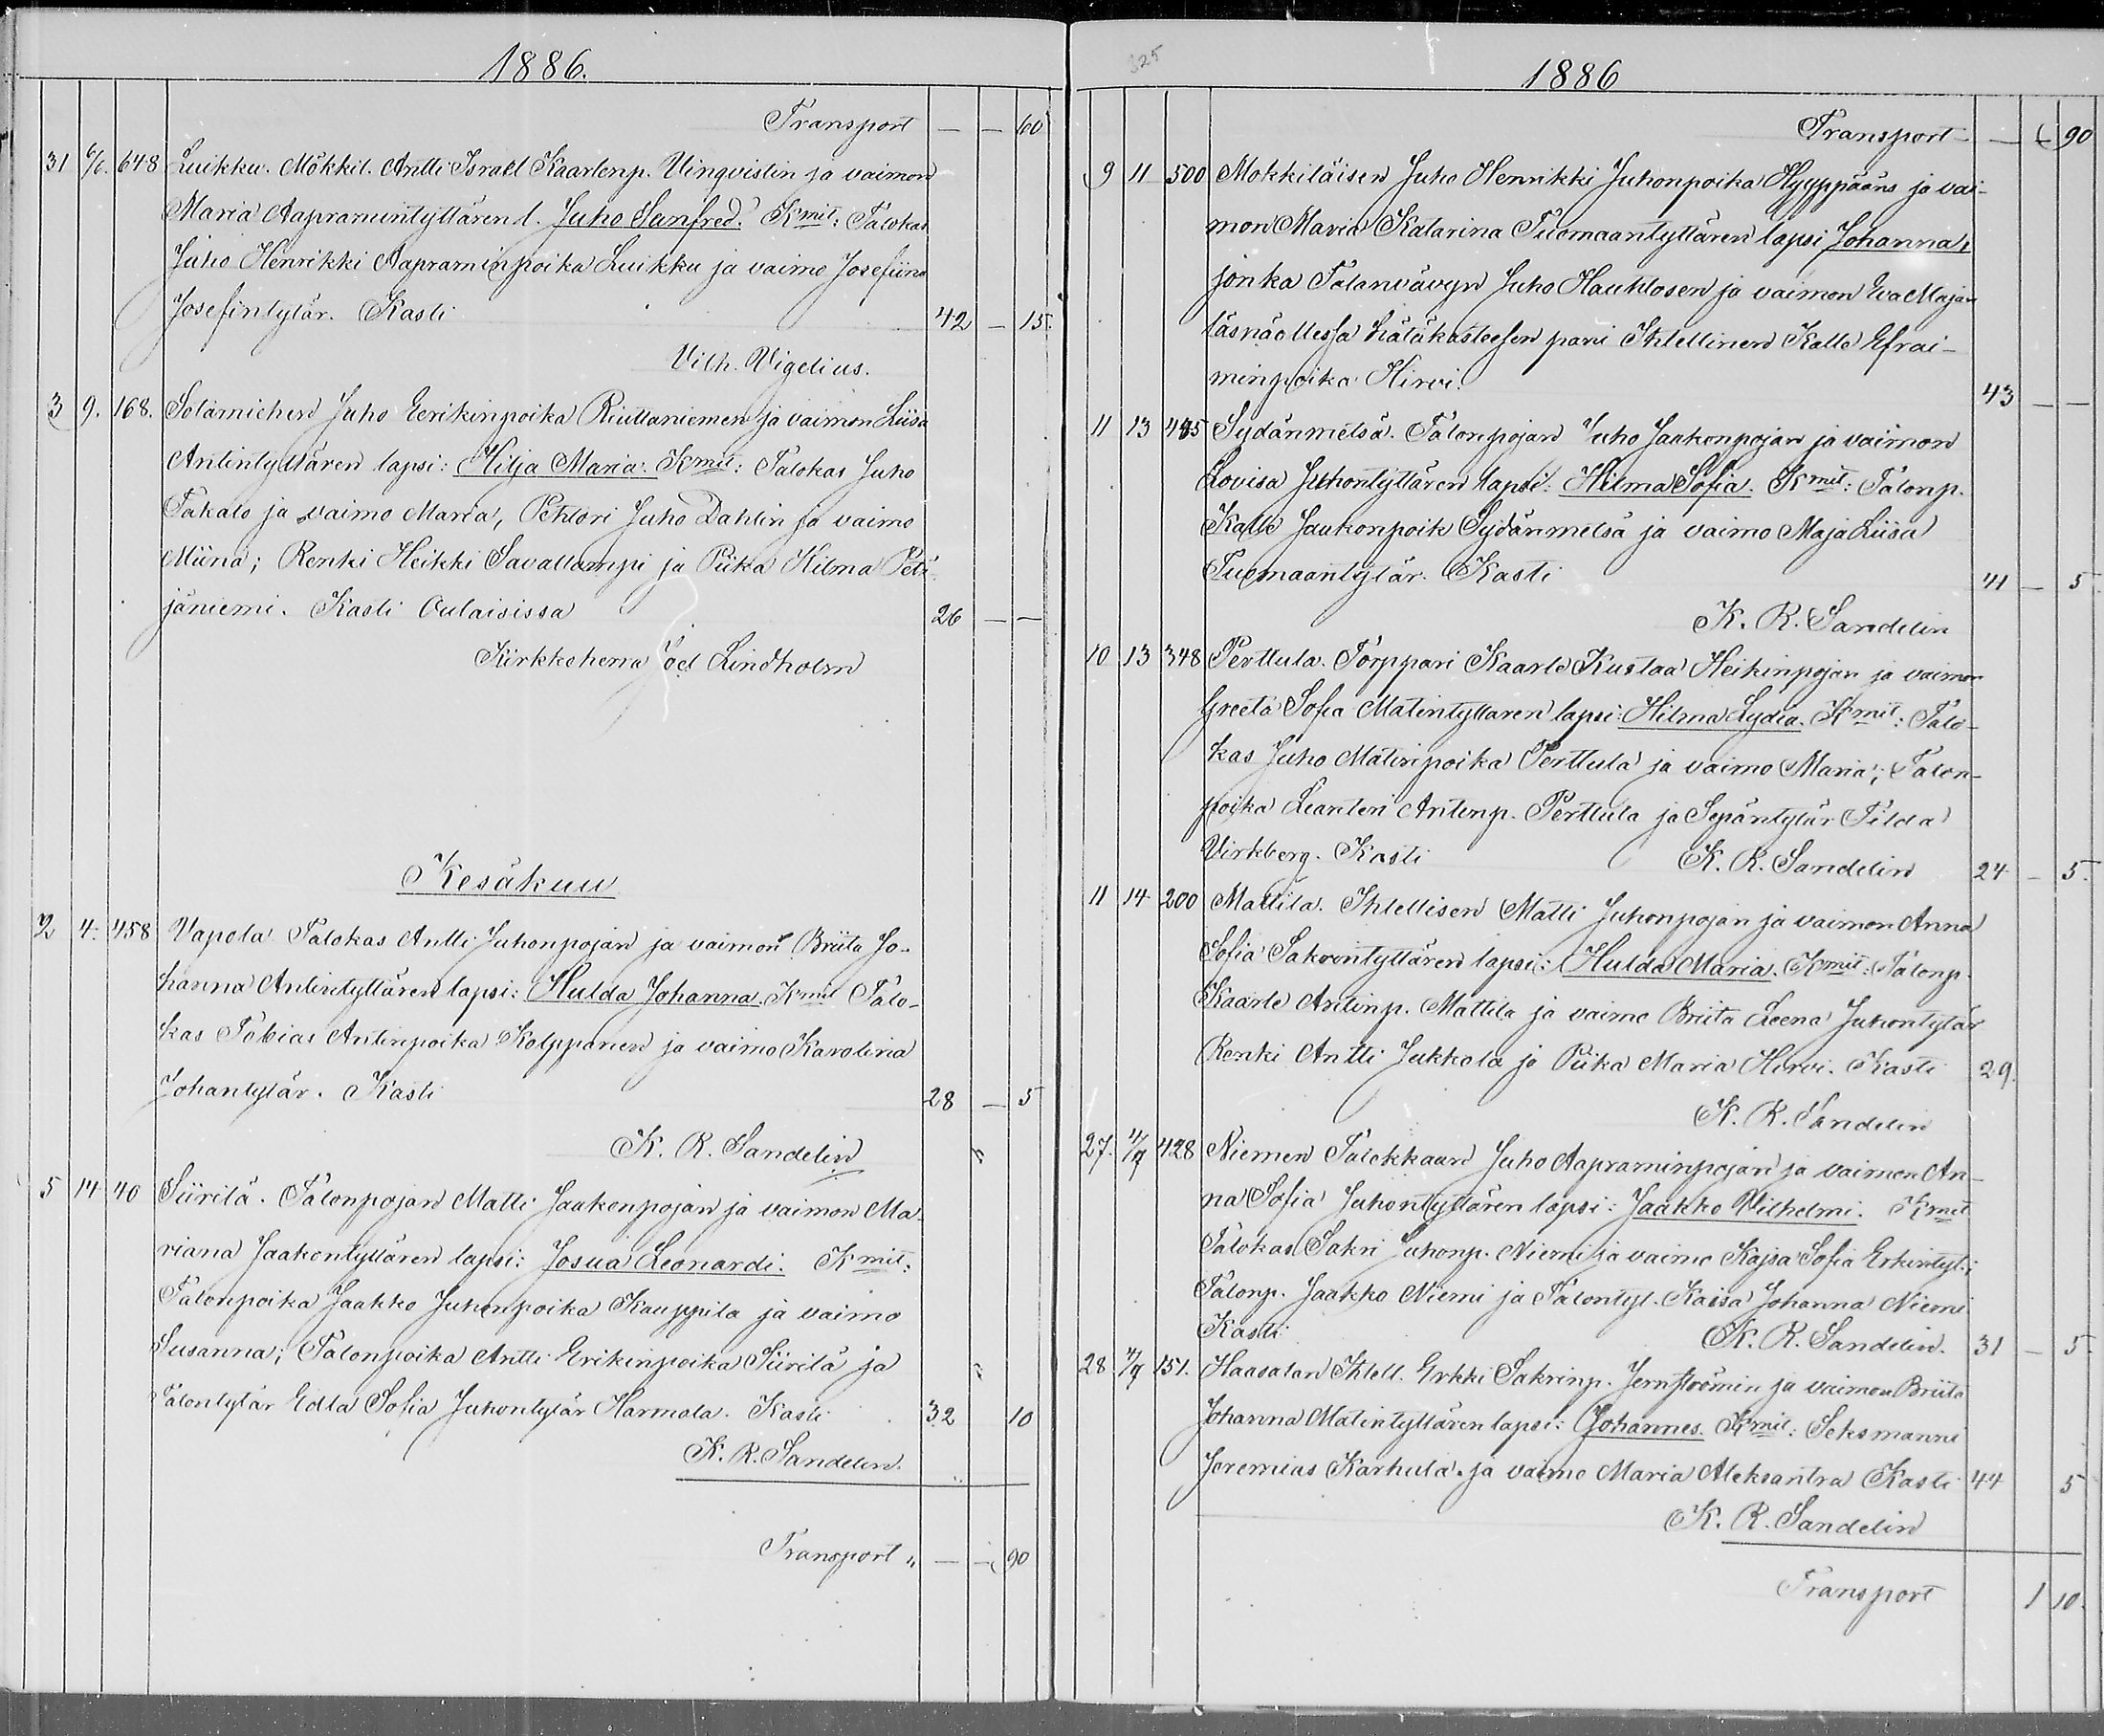 1886.
Transport — — 60
31 6/6. 648 Luikku. Mökkil. Antti Israel Kaarlenp. Vinqvistin ja vaimon
Maria Aapramintyttären l. Juho Sanfred. Kmit: Talokas
Juho Henrikki Aapraminpoika Luikku ja vaimo Josefiina
Josefintytär. Kasti 42 — 15.
Vilh. Vigelius.
3 9. 168. Sotamiehen Juho Eerikinpoika Riuttaniemen ja vaimon Liisa
Antintyttären lapsi: Hilja Maria. Kmit: Talokas Juho
Takalo ja vaimo Maria, Pehtori Juho Dahlin ja vaimo
Miina; Renki Heikki Savallampi ja Piika Hilma Petä-
jäniemi. Kasti Oulaisissa 26 — —
Kirkkoherra Joel Lindholm
Kesäkuu
2 4. 458 Vapola Talokas Antti Juhonpojan ja vaimon Briita Jo-
hanna Antintyttären lapsi: Hulda Johanna. Kmit Talo-
kas Tobias Antinpoika Kolppanen ja vaimo Karolina
Johantytär. Kasti 28 — 5
K. R. Sandelin
5 14 40 Siirilä. Talonpojan Matti Jaakonpojan ja vaimon Ma-
riana Jaakontyttären lapsi: Josua Leonardi. Kmit:
Talonpoika Jaakko Juhonpoika Kauppila ja vaimo
Susanna; Talonpoika Antti Erikinpoika Siirilä ja
Talontytär Edla Sofia Juhontytär Harmala. Kasti 32 10
K. R. Sandelin.
Transport „ — — 90
325
1886
Transport — — 90
9 11 500 Mökkiläisen Juho Henrikki Juhonpoika Hyyppään ja vai-
mon Maria Katarina Tuomaantyttären lapsi Johanna,
jonka Talanvävyn Juho Hauhtosen ja vaimon Eva Majan
läsnäollessa hätäkasteesen pani Ihtellinen Kalle Efrai-
minpoika Hirvi. 43 — —
11 13 435 Sydänmetsä. Talonpojan Juho Jaakonpojan ja vaimon
Lovisa Juhontyttären lapsi: Hilma Sofia. Kmit: Talonp.
Kalle Jaakonpoik Sydänmetsä ja vaimo Maja Liisa
Tuomaantytär. Kasti 41 — 5
K. R. Sandelin
10 13 348 Perttula. Torppari Kaarle Kustaa Heikinpojan ja vaimon
Greeta Sofia Matintyttaren lapsi: Hilma Lydia. Kmit: Talo-
kas Juho Matinpoika Perttula ja vaimo Maria; Talon-
poika Leanteri Antinp. Perttula ja Sepäntytär Tilda
Virkberg. Kasti K. R. Sandelin 24 — 5.
11 14 200 Mattila. Ihtellisen Matti Juhonpojan ja vaimon Anna
Sofia Sakrintyttären lapsi: Hulda Maria. Kmit: Talonp.
Kaarle Antinp. Mattila ja vaimo Briita Leena Juhontytär
Renki Antti Jukkola ja Piika Maria Hirvi. Kasti 29.
K. R. Sandelin
27. 428 Niemen Talokkaan Juho Aapraminpojan ja vaimon An-
na Sofia Juhontyttären lapsi: Jaakko Vilhelmi. Kmit
Talokas Sakri Juhonp. Niemi ja vaimo Kajsa Sofia Erkintyt.;
Talonp. Jaakko Niemi ja Talontyt. Kaisa Johanna Niemi
Kasti K. R. Sandelin. 31 — 5.
28. 151. Haasalan Ihtell. Erkki Sakrinp. Jernströmin ja vaimon Briita
Johanna Matintyttären lapsi: Johannes. Kmit: Seksmanni
Jeremias Karhula. ja vaimo Maria Aleksantra Kasti 44 5
K. R. Sandelin
Transport 1 10.